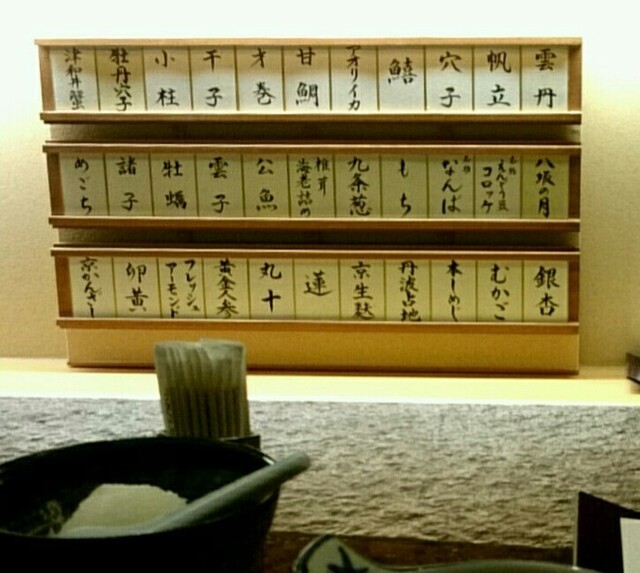 雲丹
帆立
穴子
鱚
アオリイカ
甘鯛
才巻
干子
小柱
牡丹穴子
津和井蟹
八坂の月
えんどう豆コロッケ
なんば
もち
九条葱
椎茸海老詰め
公魚
雲子
牡蠣
諸子
めごち
銀杏
むかご
本しめじ
丹波占地
京生麸
蓮
丸十
黄金人参
フレッシュアーモンド
卵黄
京かんざし